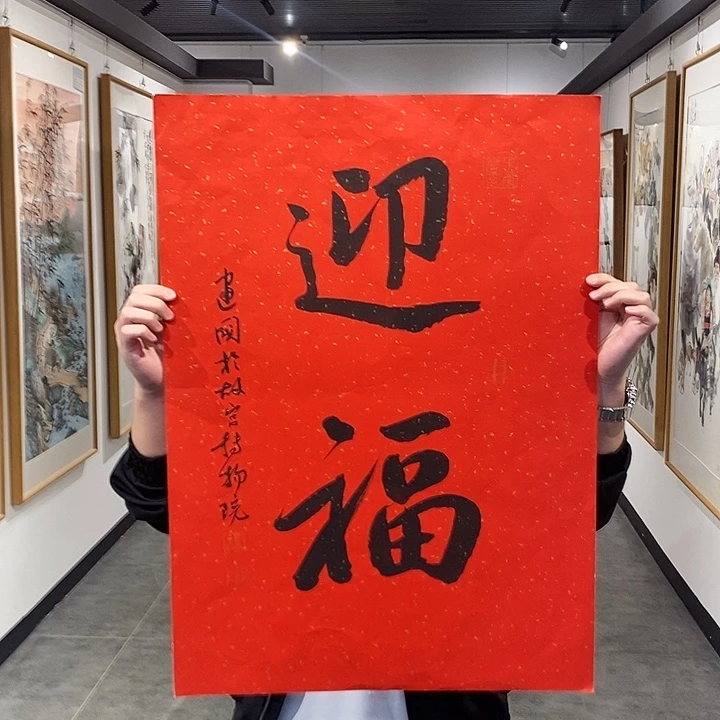 迎福
建国於故宫博物院